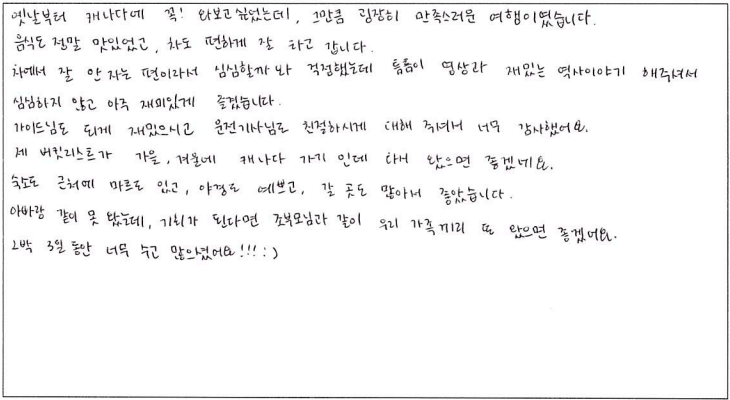 옛날부터 캐나다에 꼭! 와보고 싶었는데, 그만큼 굉장히 만족스러운 여행이였습니다.
음식도 정말 맛있었고, 차도 편하게 잘 타고 갑니다.
차에서 잘 안 자는 편이라서 심심할까 봐 걱정했는데 틈틈이 영상과 재밌는 역사이야기 해주셔서
심심하지 않고 아주 재미있게 즐겼습니다.
가이드님도 되게 재밌으시고 운전기사님도 친절하시게 대해 주셔서 너무 감사했어요.
제 버킷리스트가 가을, 겨울에 캐나다 가기 인데 다시 왔으면 좋겠네요.
숙소도 근처에 마트도 있고, 야경도 예쁘고, 갈 곳도 많아서 좋았습니다.
아빠랑 같이 못 왔는데, 기회가 된다면 조부모님과 같이 우리 가족끼리 또 왔으면 좋겠네요.
2박 3일 동안 너무 수고 많으셨어요!!! :)